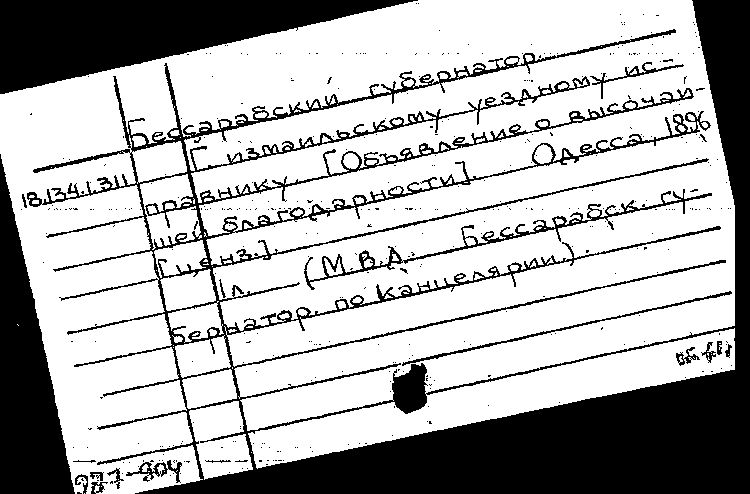 Бессарабский губернатор.
Г. измаильскому уездному ис-
18.134.1.311
правнику. [Объявление о высочай-
шей благодарности]. Одесса, 1896
[ценз.].
1л. (М.В.Д. Бессарабск. гу-
бернатор. по канцелярии.).
977-904